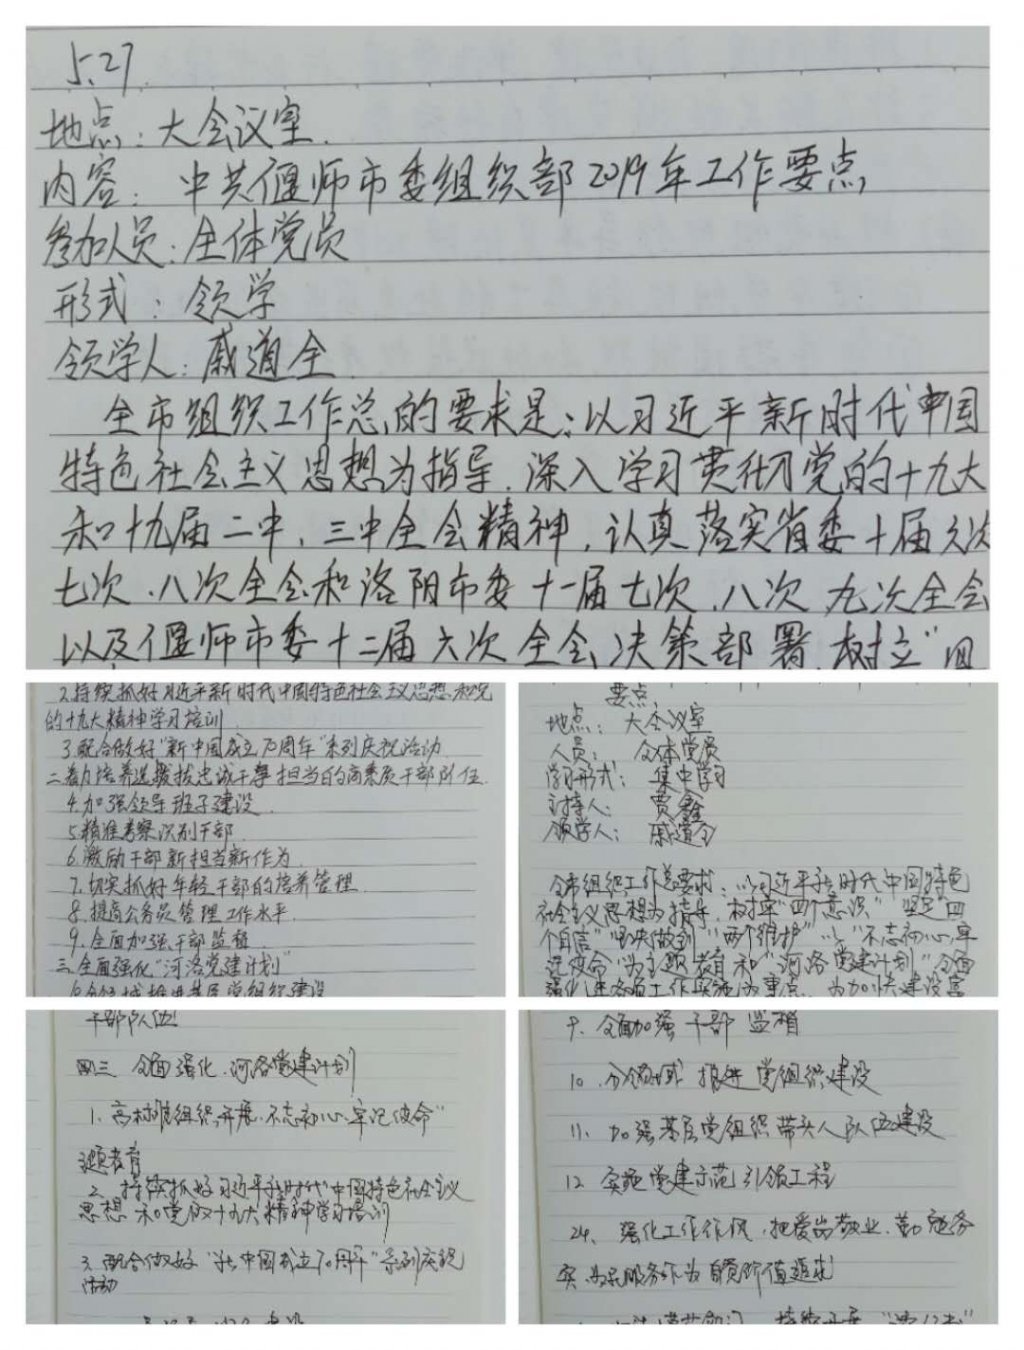 5.27
地点：大会议室.
内容：中共偃师市委组织部2019年工作要点
参加人员：全体党员
形式：领学
领学人：戚道全
全市组织工作总的要求是：以习近平新时代中国
特色社会主义思想为指导，深入学习贯彻党的十九大
和十九届二中，三中全会精神，认真落实省委十届六次
七次、八次全会和洛阳市委十一届七次、八次 九次全会
以及偃师市委十二届六次全会决策部署，树立“四
2.持续抓好习近平新时代中国特色社会主义思想和党
的十九大精神学习培训
3.配合做好“新中国成立70周年”系列庆祝活动
二.着力培养选拔忠诚干净担当的高素质干部队伍
4.加强领导班子建设
5.精准考察识别干部
6.激励干部新担当新作为
7.切实抓好年轻干部的培养管理
8.提高公务员管理工作水平
9.全面加强干部监督
三.全面强化“河洛党建计划”
要点
地点：大会议室
人员：全体党员
学习形式：集中学习
主持人：贾鑫
领学人：戚道全
全市组织工作总要求：以习近平新时代中国特色
社会主义思想为指导，树牢“四个意识”坚定“四
个自信”坚决做到“两个维护”以“不忘初心，牢
记使命”为主题教育和“河洛党建计划”全面
强化 各项工作实施为重点，为加快建设富
干部队伍
三 全面强化，河洛党建计划
1. 高标准组织开展“不忘初心、牢记使命”
主题教育
2. 持续抓好习近平新时代中国特色社会主义
思想和党的十九大精神学习培训
3. 配合做好“新中国成立70周年”系列庆祝
活动
9. 全面加强干部监督
10. 分领域推进党组织建设
11. 加强基层党组织带头人队伍建设
12. 实施党建示范引领工程
24. 强化工作作风，把爱岗敬业、勤 务
实、为民服务作为自觉价值追求